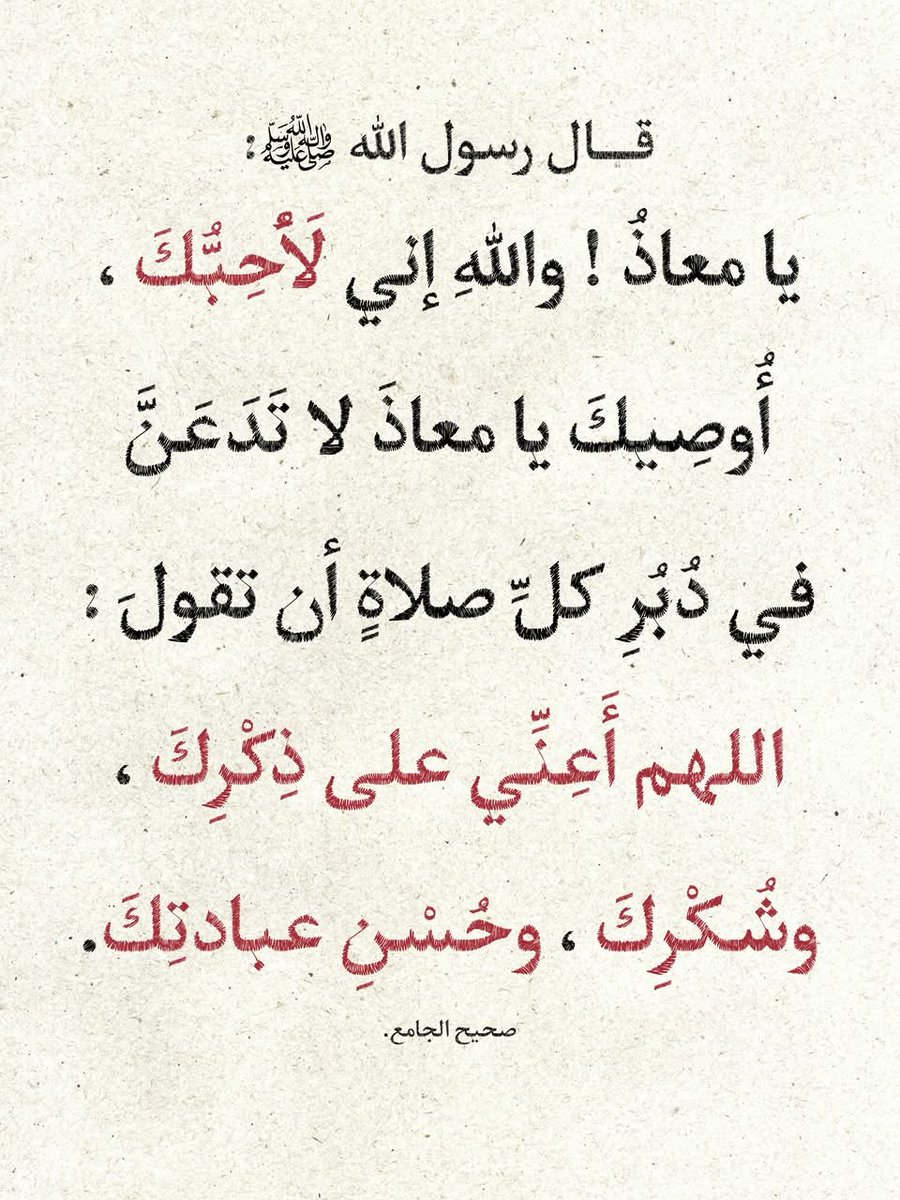 قـــال رسول الله ﷺ:
يا معاذُ ! واللهِ إني لَأُحِبُّكَ ،
أُوصِيكَ يا معاذَ لا تَدَعَنَّ
في دُبُرِ كلِّ صلاةٍ أن تقولَ :
اللهم أَعِنِّي على ذِكْرِكَ ،
وشُكْرِكَ ، وحُسْنِ عبادتِكَ.
صحيح الجامع.